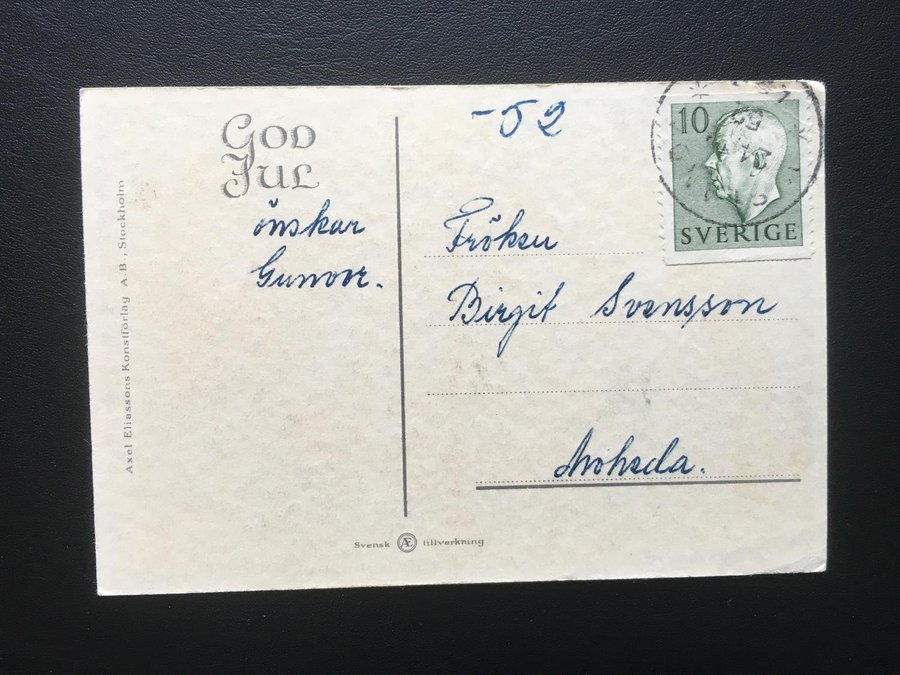 -52
GOD
JUL
önskar
Gunvor.
10
SVERIGE
Fröken
Birgit Svensson
Axel Eliassons Konstförlag A.B., Stockholm
Svensk Æ tillverkning